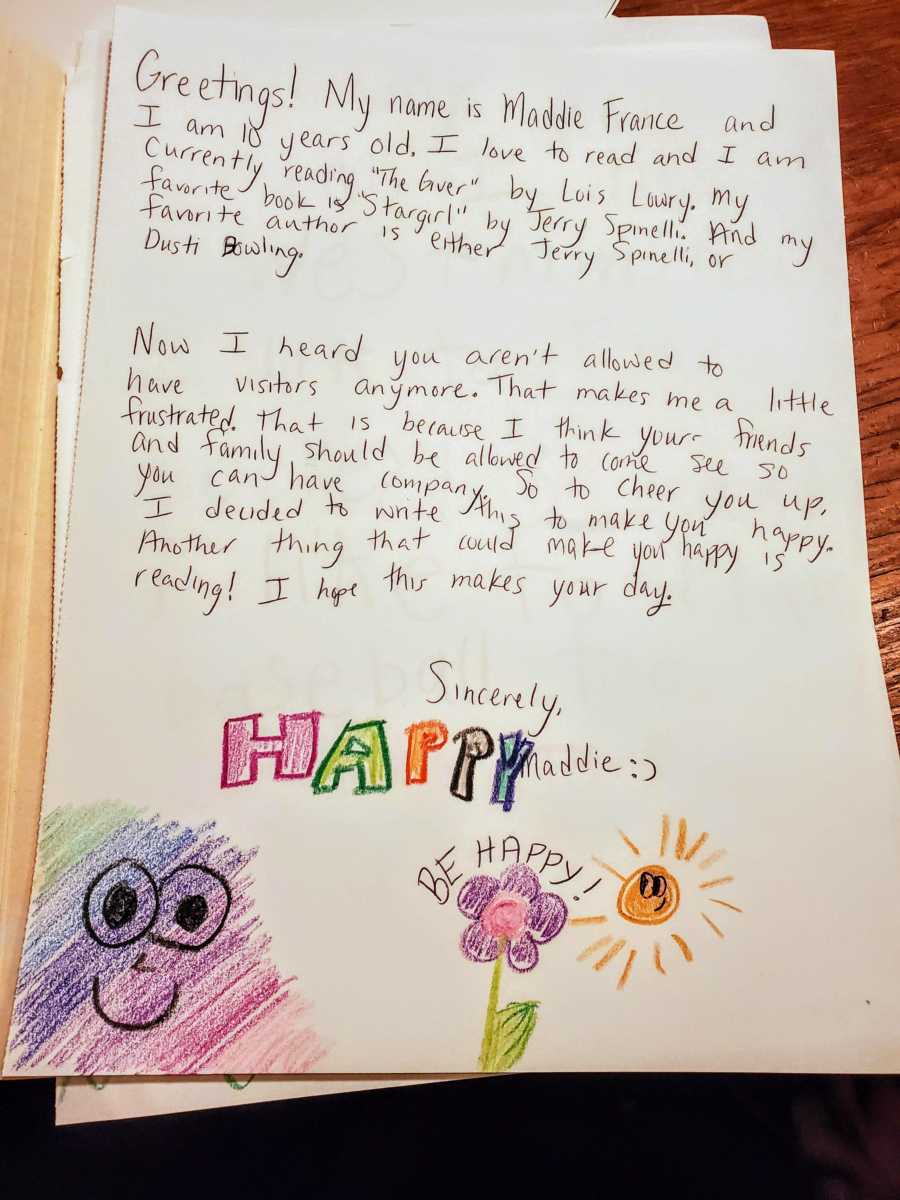 Greetings! My name is Maddie France and
I am 10 years old. I love to read and I am
Currently reading "The Giver" by Lois Lowry. My
favorite book is "Stargirl" by Jerry Spinelli. And my
favorite author is either Jerry Spinelli, or
Dusti Bowling.
Now I heard you aren't allowed to
have visitors anymore. That makes me a little
frustrated. That is because I think your friends
and family should be allowed to come see so
you can have company. So to cheer you up,
I decided to write this to make you happy.
Another thing that could make you happy is
reading! I hope this makes your day.
Sincerely,
HAPPY Maddie :)
BE HAPPY!